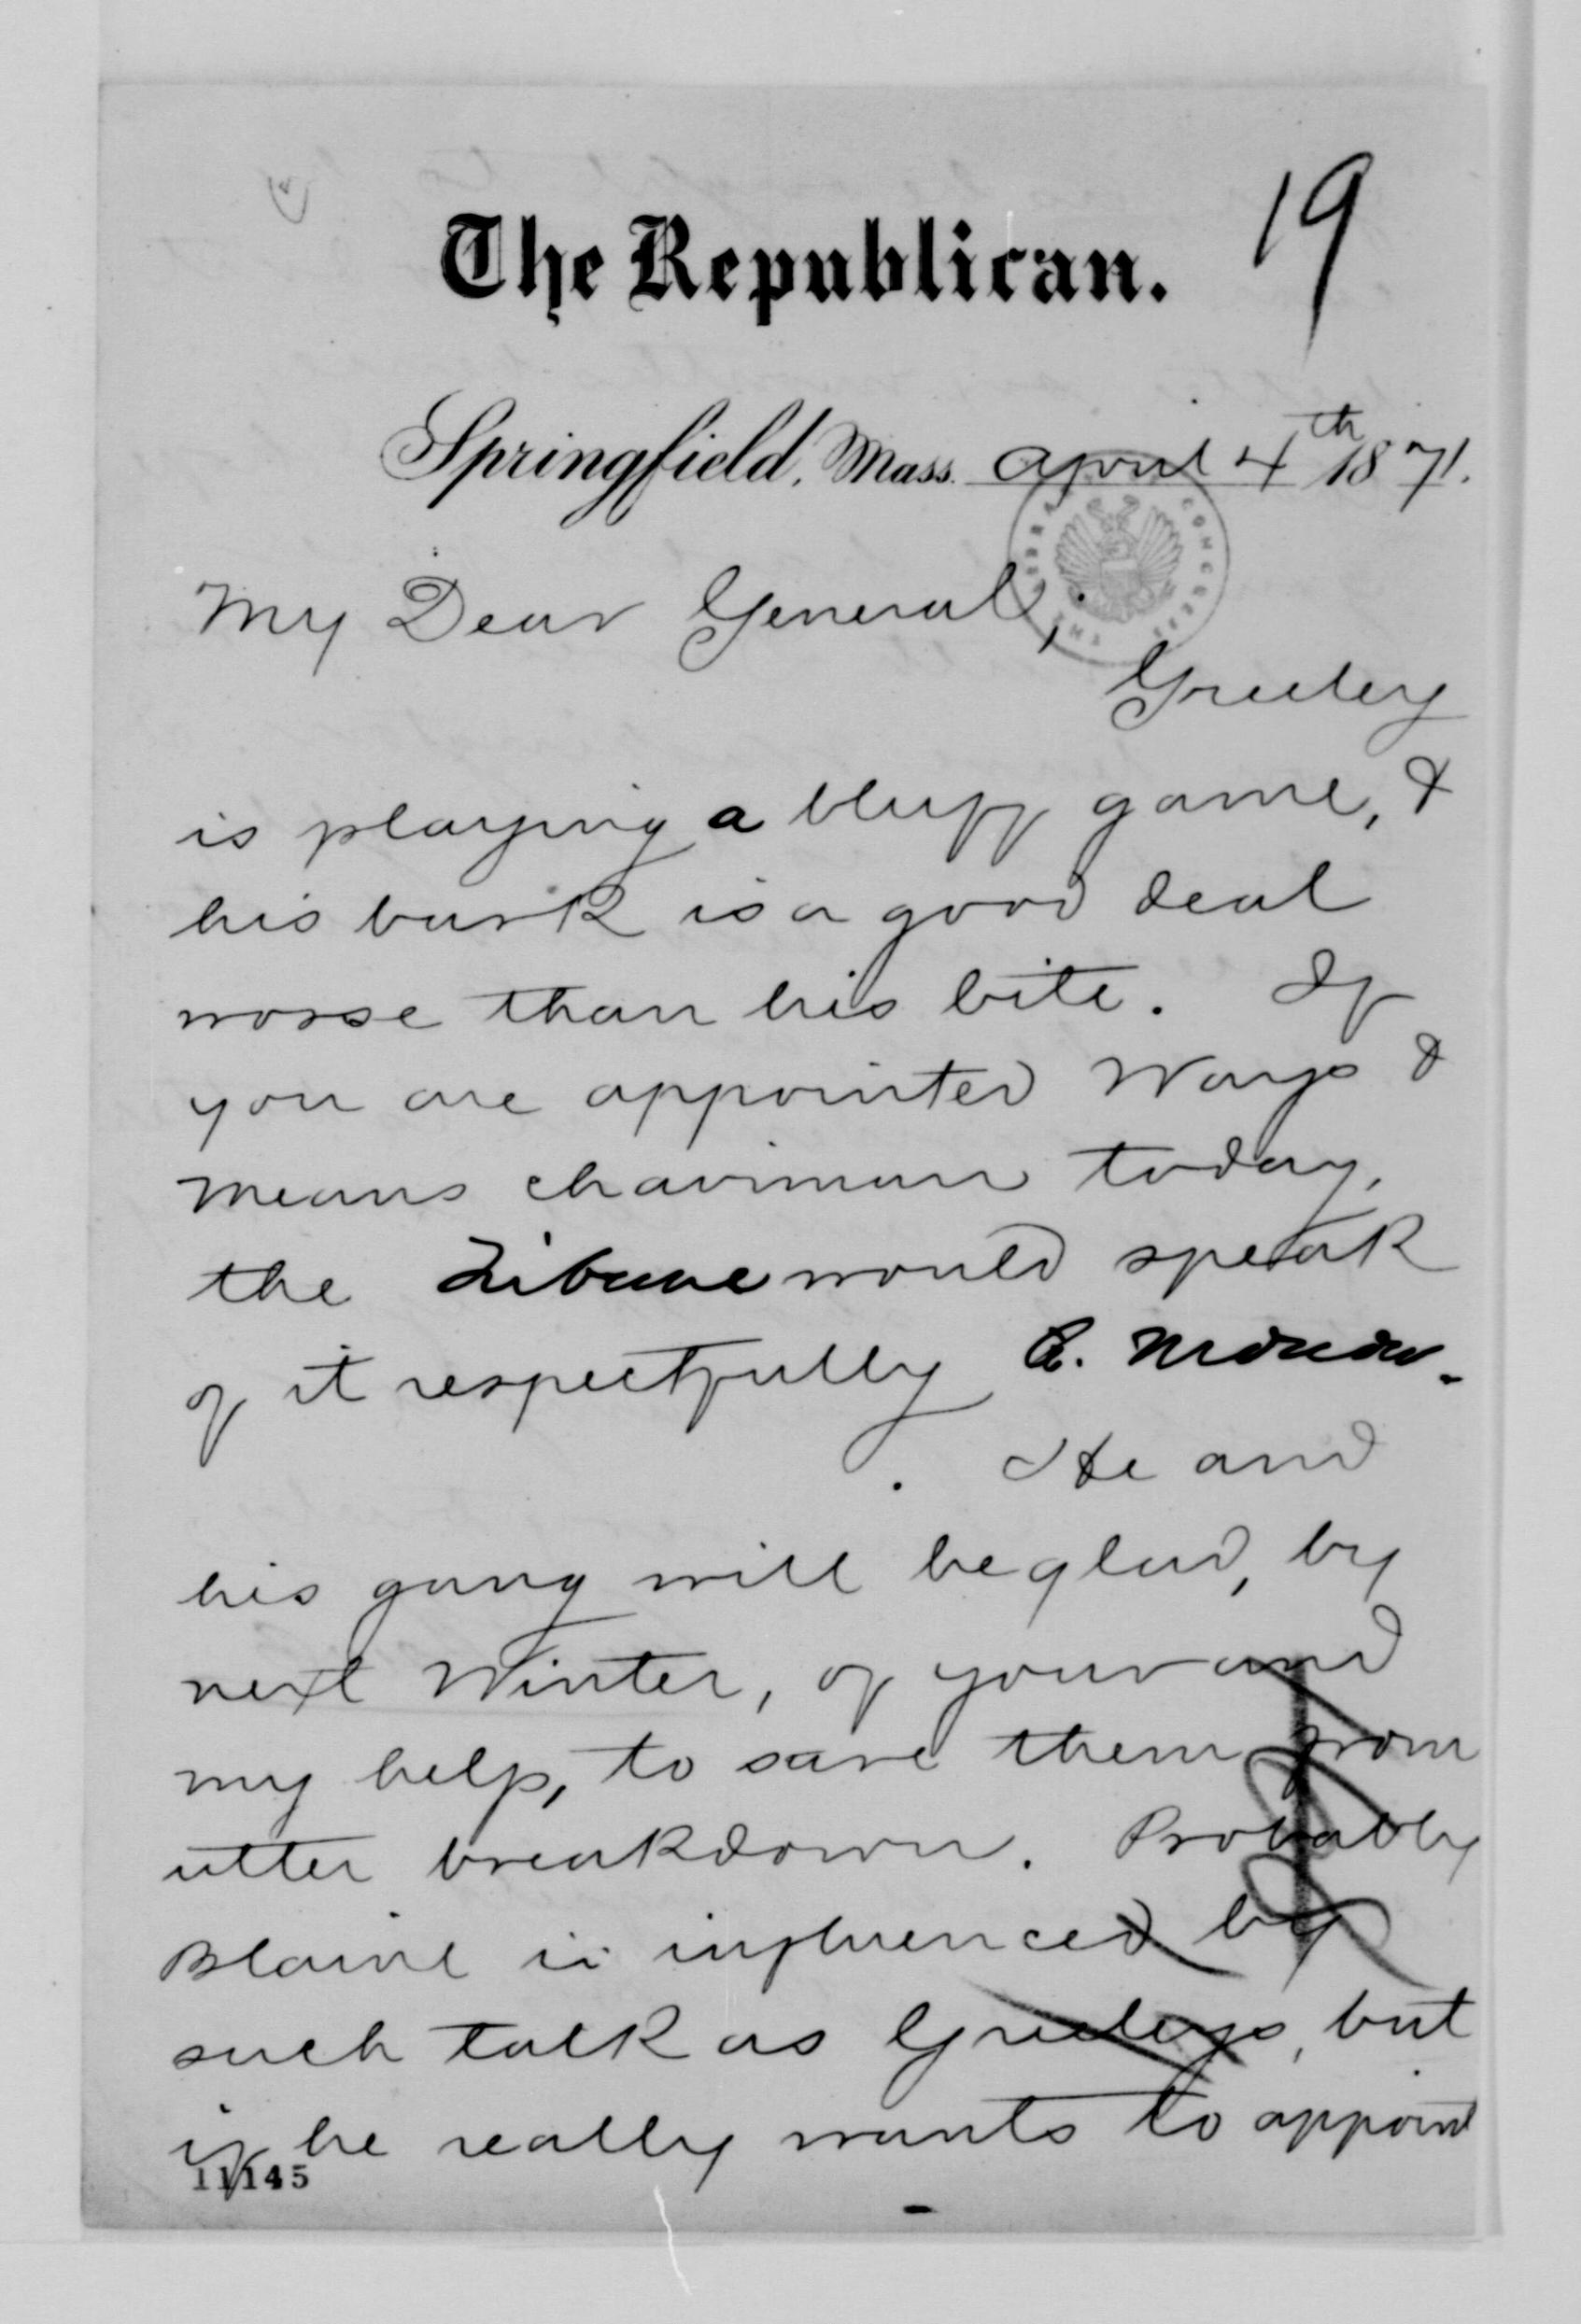 19
The Republican.
Springfield, Mass. April 4th 1871.
My Dear General,
Greeley
is playing a bluff game, &
his bark is a good deal
worse than his bite. If
you are appointed Ways &
Means chairman today,
the Tribune would speak
of it respectfully
. He and
his gang will be glad, by
next Winter, of your and
my help, to save them from
utter breakdown. Probably
Blaine is influenced by
such talk as Greeleys, but
if he really wants to appoint
11145